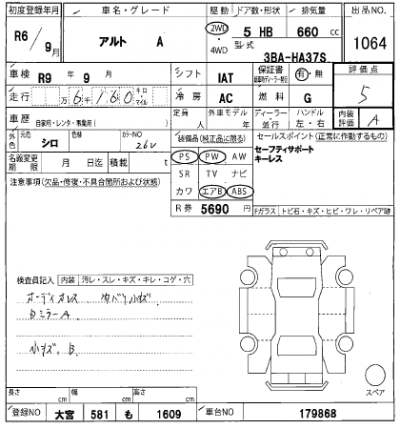 初度登録年月 車名・グレード 駆動 ドア数・形状 排気量 出品NO
R6/9月 アルト A 2WD 4WD 5 HB 660 cc 1064
型式 3BA-HA37S
車検 R9 年 9 月 シフト IAT 保証書 有・無 評価点
走行 万 6千160 キロ マイル 冷房 AC 燃料 G 5
車歴 自家用・レンタ・事業用( ) 定員 人 外車モデル 年 ディーラー 並行 ハンドル 左・右 内装評価 A
外色 元色 シロ 色替 カラーNO 26U 装備品(純正品に限る) セールスポイント(正常に作動するもの)
名義変更期限 月 日迄 積載 t PS PW AW セーフティサポート
SR TV ナビ キーレス
注意事項(欠品・修復・不具合箇所および状態) カワ エアB ABS
R券 5690 円 Fガラス トビ石・キズ・ヒビ・ワレ・リペア跡
検査員記入 内装 汚レ・スレ・キズ・キレ・コゲ・穴
オーディオレス
ミラーA
小キズ、B
スペア
長さ cm 幅 cm 高さ cm
登録NO 大宮 581 も 1609 車台NO 179868